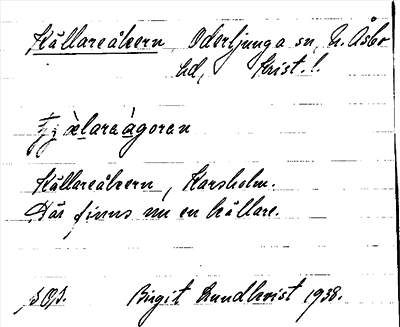 Källareåkern, Oderljunga sn, N. Åsbo
hd, Krist. l.
Källareåkern, Karsholm.
Där finns nu en källare.
Birgit Lundkvist 1938.